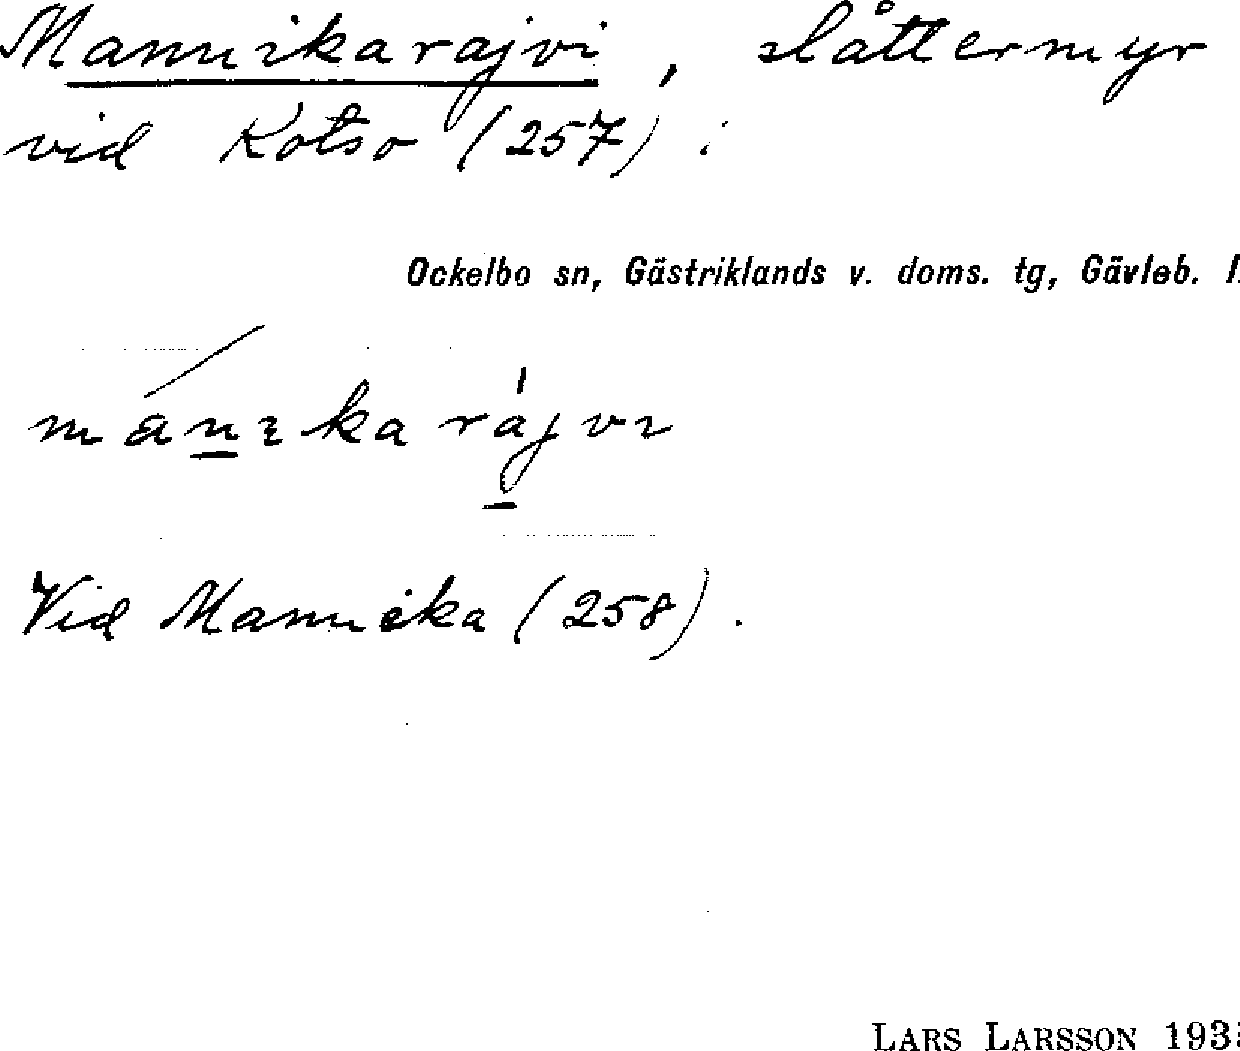 Mannikarajvi, slåttermyr
vid Kotso (257).
Ockelbo sn, Gästriklands v. doms. tg, Gävleb. l.
mánıkarájvı
Vid Mannika (258).
LARS LARSSON 193